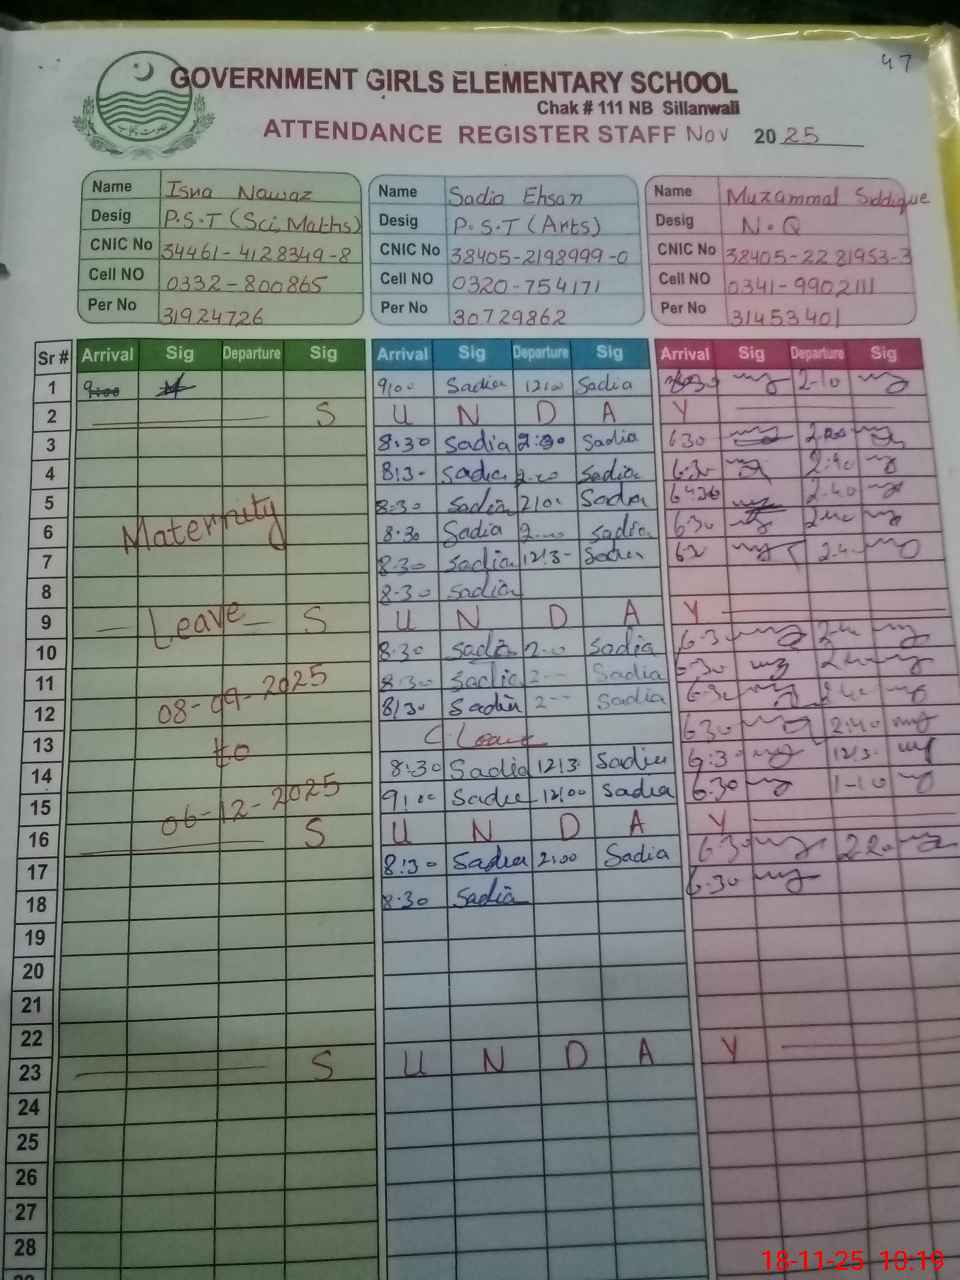 47
GOVERNMENT GIRLS ELEMENTARY SCHOOL
Chak # 111 NB Sillanwali
ATTENDANCE REGISTER STAFF Nov 2025
Name Isna Nawaz
Desig P.S.T (Sci, Maths)
CNIC No 34461-4128349-8
Cell NO 0332-800865
Per No 31924726
Name Sadia Ehsan
Desig P.S.T (Arts)
CNIC No 38405-2198999-0
Cell NO 0320-754171
Per No 30729862
Name Muzammal Siddique
Desig N.Q
CNIC No 38405-2281953-3
Cell NO 0341-9902111
Per No 31453401
Sr # Arrival Sig Departure Sig Arrival Sig Departure Sig Arrival Sig Departure Sig
1 9:00 9:00 Sadia 12:00 Sadia 2-10
2 S U N D A Y
3 8:30 Sadia 2:00 Sadia 630
4 8:30 Sadia Sadia 6:30 2:40
5 8:30 Sadia 2:00 Sadia 2:40
6 8:30 Sadia Sadia 630
7 8:30 Sadia 12:3- Sadia
8 8:30 Sadia
9 S U N D A Y
10 8:30 Sadia Sadia 6:30
11 8:30 Sadia 2-- Sadia 630
12 8:30 Sadia 2-- Sadia
13 C Leave 630 2:40
14 8:30 Sadia 12:3 Sadia 6:30 12:3
15 9:00 Sadia 12:00 Sadia 6:30 1-10
16 S U N D A Y
17 8:30 Sadia 2:00 Sadia 630 220
18 8:30 Sadia 6:30
Maternity
Leave
08-09-2025
to
06-12-2025
19
20
21
22
23 S U N D A Y
24
25
26
27
28
18-11-25 10:19